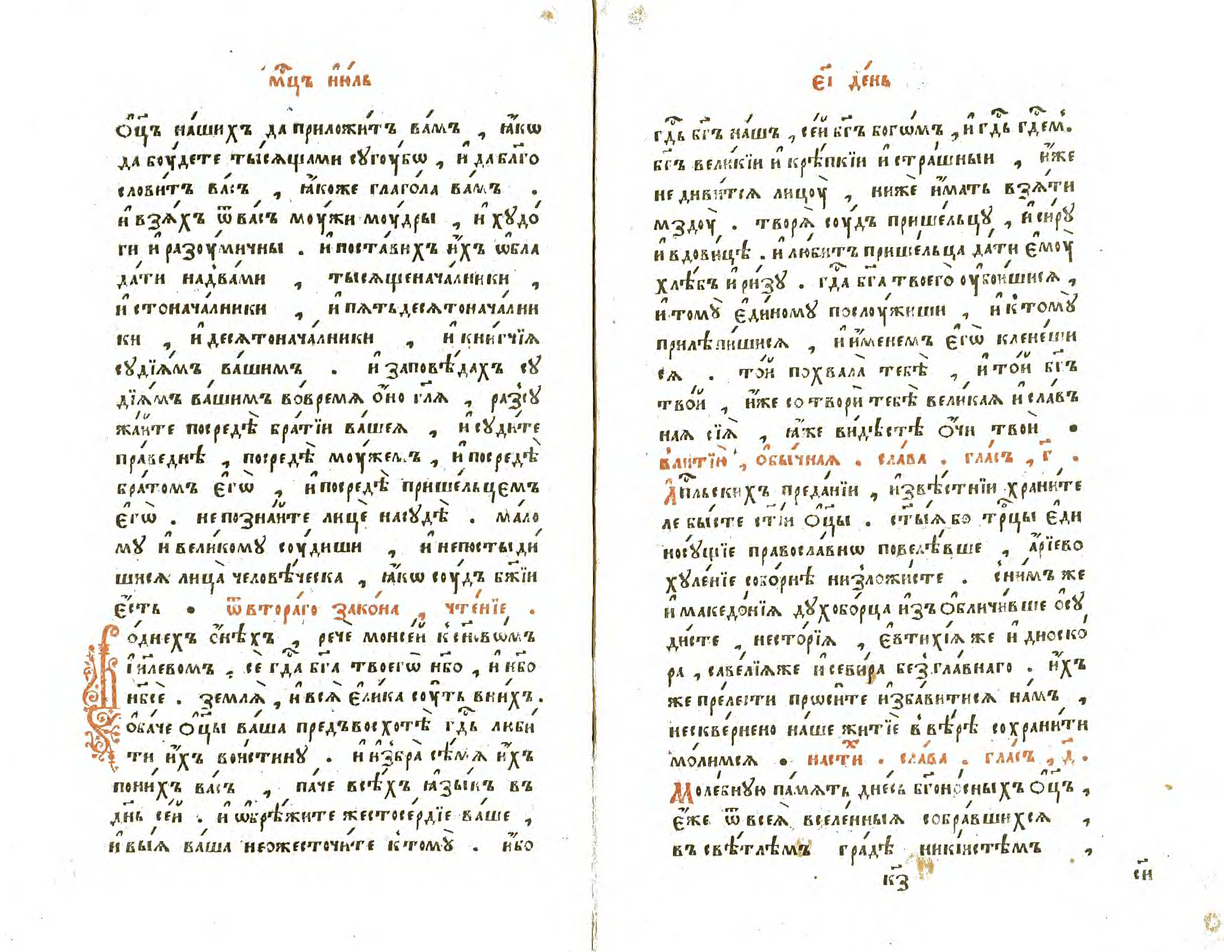 мⷭ҇цъ і҆ю́ль
Ѻ҆ц҃ъ на́шихъ да приложи́тъ ва́мъ , ꙗ҆́кѡ
да бꙋ́дете ты́сѧщами сꙋгꙋ́бѡ , и҆ да благо
слови́тъ ва́съ , ꙗ҆́коже глаго́ла ва́мъ .
и҆ взѧ́хъ ѿ ва́съ мꙋ́жи мꙋ́дры , и҆ хꙋдо́
ги и҆ разꙋ́мичны . и҆ поста́вихъ и҆́хъ ѡ҆бла
да́ти над̾ ва́ми , ты́сѧщенача́лники ,
и҆ стонача́лники , и҆ пѧтьдесѧтонача́лни
ки , и҆ десѧтонача́лники , и҆ кни́гчїѧ
сꙋдїѧ́мъ ва́шимъ . и҆ заповѣ́дахъ сꙋ
дїѧ́мъ ва́шимъ во вре́мѧ о҆́но гл҃ѧ , разсꙋ
жа́йте посредѣ̀ бра́тїи ва́шеѧ , и҆ сꙋди́те
пра́веднѣ , посредѣ̀ мꙋ́жемъ , и҆ посредѣ̀
бра́томъ є҆гѡ̀ , и҆ посредѣ̀ прише́льцемъ
є҆гѡ̀ . не позна́йте лицѐ на сꙋдѣ̀ . ма́ло
мꙋ и҆ вели́комꙋ сꙋ́диши , и҆ не постыди́
шисѧ лица̀ человѣ́ческа , ꙗ҆́кѡ сꙋ́дъ бж҃їи
є҆́сть . ѿ втора́гѡ зако́на , чте́нїе .
Во́ днехъ ѻ҆́нѣхъ , речѐ моисе́й к̾ сн҃ѡвѡ́мъ
і҆и҃левомъ . сѐ гдⷭ҇а бг҃а твоегѡ̀ нб҃о , и҆ нб҃о
нб҃сѐ . землѧ̀ , и҆ всѧ̀ є҆ли́ка сꙋ́ть в̾ ни́хъ .
ѻ҆ба́че ѻ҆ц҃ы̀ ва́ша предъвосхотѣ̀ гдⷭ҇ь люби́
ти и҆́хъ вои́стинꙋ . и҆ и҆збра̀ сѣ́мѧ и҆́хъ
по ни́хъ ва́съ , па́че всѣ́хъ ꙗ҆зы́къ въ
дн҃ь се́й . и҆ ѡ҆брѣ́жите жестосе́рдїе ва́ше ,
и҆ вы́ѧ ва́ша не ѡ҆жесточи́те к̾ томꙋ̀ . и҆́бо
є҃і де́нь
гдⷭ҇ь бг҃ъ на́шъ , се́й бг҃ъ богѡ́мъ , и҆ гдⷭ҇ь гдⷭ҇ем .
бг҃ъ вели́кїи и҆ крѣ́пкїи и҆ стра́шныи , и҆́же
не диви́тсѧ лицꙋ̀ , ниже́ и҆́мать взѧ́ти
мздꙋ̀ . творѧ̀ сꙋ́дъ прише́льцꙋ , и҆ си́рꙋ
и҆ вдови́цѣ . и҆ лю́битъ прише́льца да́ти є҆мꙋ̀
хлѣ́бъ и҆ ри́зꙋ . гдⷭ҇а бг҃а твоего̀ ᲂу҆бои́шисѧ ,
и҆ томꙋ̀ є҆ди́номꙋ послꙋ́жиши , и҆ к̾ томꙋ̀
прилѣпи́шисѧ , и҆ и҆́менемъ є҆гѡ̀ клене́ши
сѧ . то́й похвала̀ тебѣ̀ , и҆ то́й бг҃ъ
тво́й , и҆́же сотворѝ тебѣ̀ вели́каѧ и҆ сла́в
наѧ сїѧ̀ , ꙗ҆́же ви́дѣстѣ ѻ҆́чи твоѝ .
в̾ литїю̀ , ѻ҆бы́чнаѧ . сла́ва . гла́съ , г҃ .
Апⷭ҇льскихъ преда́нїи , и҆звѣ́стнїи храни́те
ле бы́сте ст҃і́и ѻ҆ц҃ы̀ . ст҃ы́ѧ бо трⷪ҇цы є҆ди
носꙋ́щїе правосла́внѡ повелѣ́вше , а҆́рїево
хꙋле́нїе собо́рнѣ низложи́сте . с̾ ни́мъ же
и҆ македо́нїѧ дꙋхобо́рца и҆з̾ѻбличи́вше ѻ҆сꙋ
ди́сте , несто́рїѧ , є҆втихі́ѧ же и҆ дио́ско
ра , саве́лїѧ же и҆ севи́ра без̾гла́внаго . и҆́хъ
же пре́лести прѡси́те и҆зба́витисѧ на́мъ ,
нескверне́но на́ше житїѐ в̾ вѣ́рѣ сохрани́ти
мо́лимсѧ . на стиⷯ . сла́ва . гла́съ , д҃ .
Моле́бнꙋю па́мѧть дне́сь бг҃оно́сныхъ ѻ҆ц҃ъ ,
є҆́же ѿ всеѧ̀ вселе́нныѧ собра́вшихсѧ ,
въ свѣ́тлѣмъ гра́дѣ никі́истѣмъ ,
к҃з
сі́и